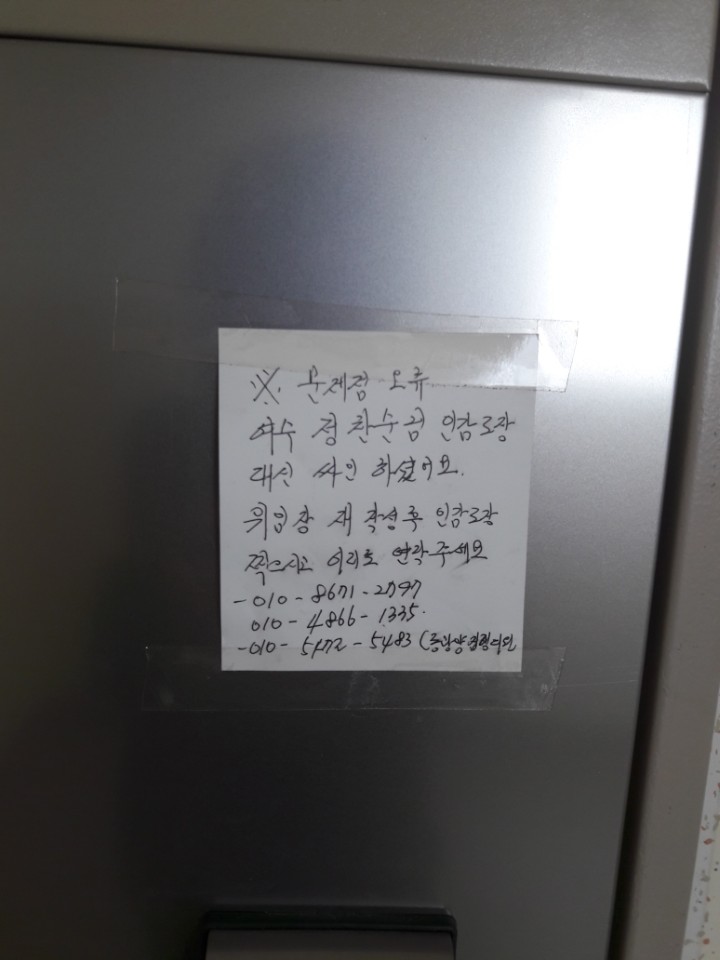 ※. 문제점 오류
여수 정찬순꼼 인감도장
대신 싸인 하셨어요.
위임장 재 작성후 인감도장
찍으시고 이리로 연락주세요
-010-8671-2797
010-4866-1335.
-010-5472-5483